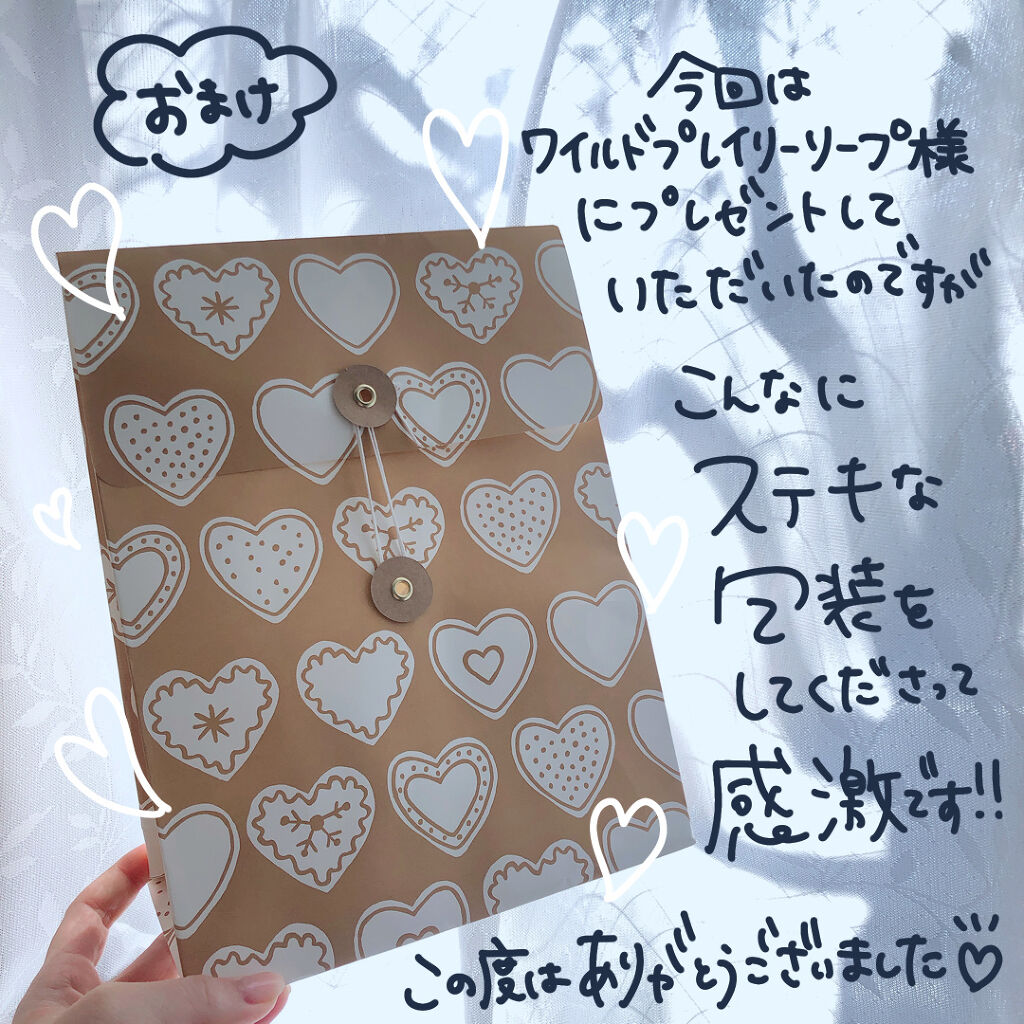 おまけ
今回は
ワイルドプレイリーソープ様
にプレゼントして
いただいたのですが
こんなに
ステキな
包装を
してくださって
感激です!!
この度はありがとうございました♡